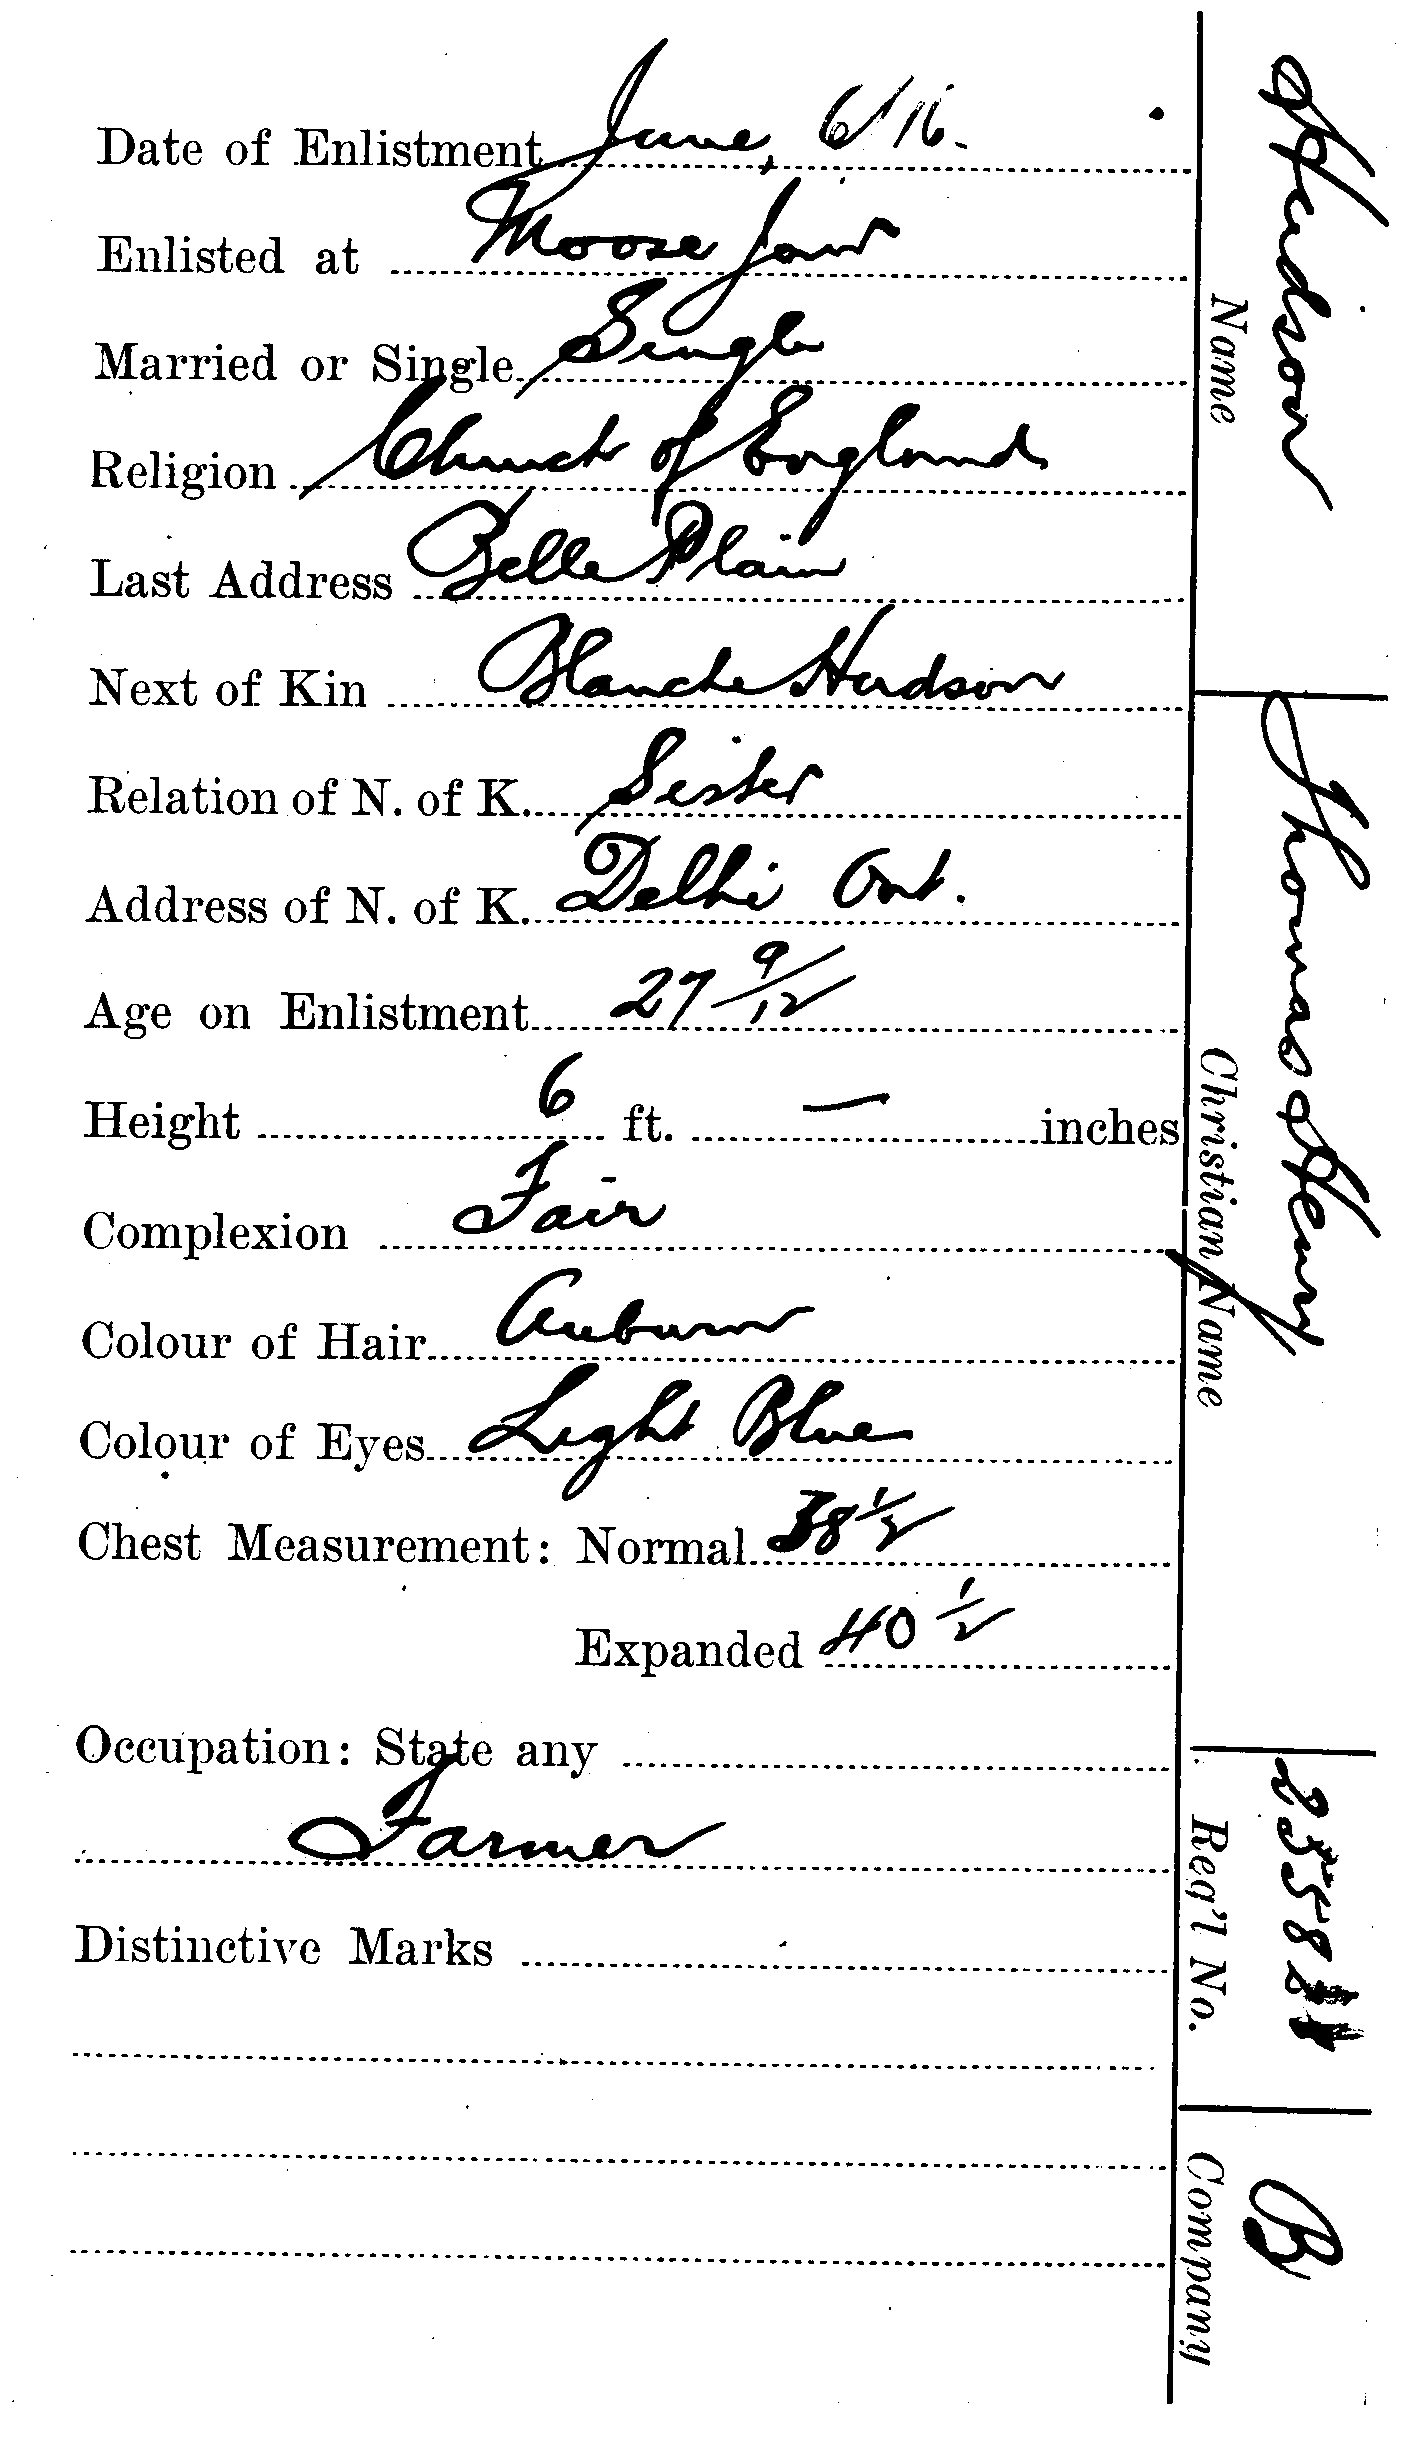 Date of Enlistment June, 6/16.
Enlisted at Moose Jaw
Married or Single Single
Religion Church of England
Last Address Belle Plain
Next of Kin Blanche Hudson
Relation of N. of K. Sister
Address of N. of K. Delhi Ont.
Age on Enlistment 27 9/12
Height 6 ft. — inches
Complexion Fair
Colour of Hair Auburn
Colour of Eyes Light Blue
Chest Measurement: Normal 38 1/2
Expanded 40 1/2
Occupation: State any
Farmer
Distinctive Marks
Hudson
Name
Thomas Henry
Christian Name
Reg'l No.
B
Company